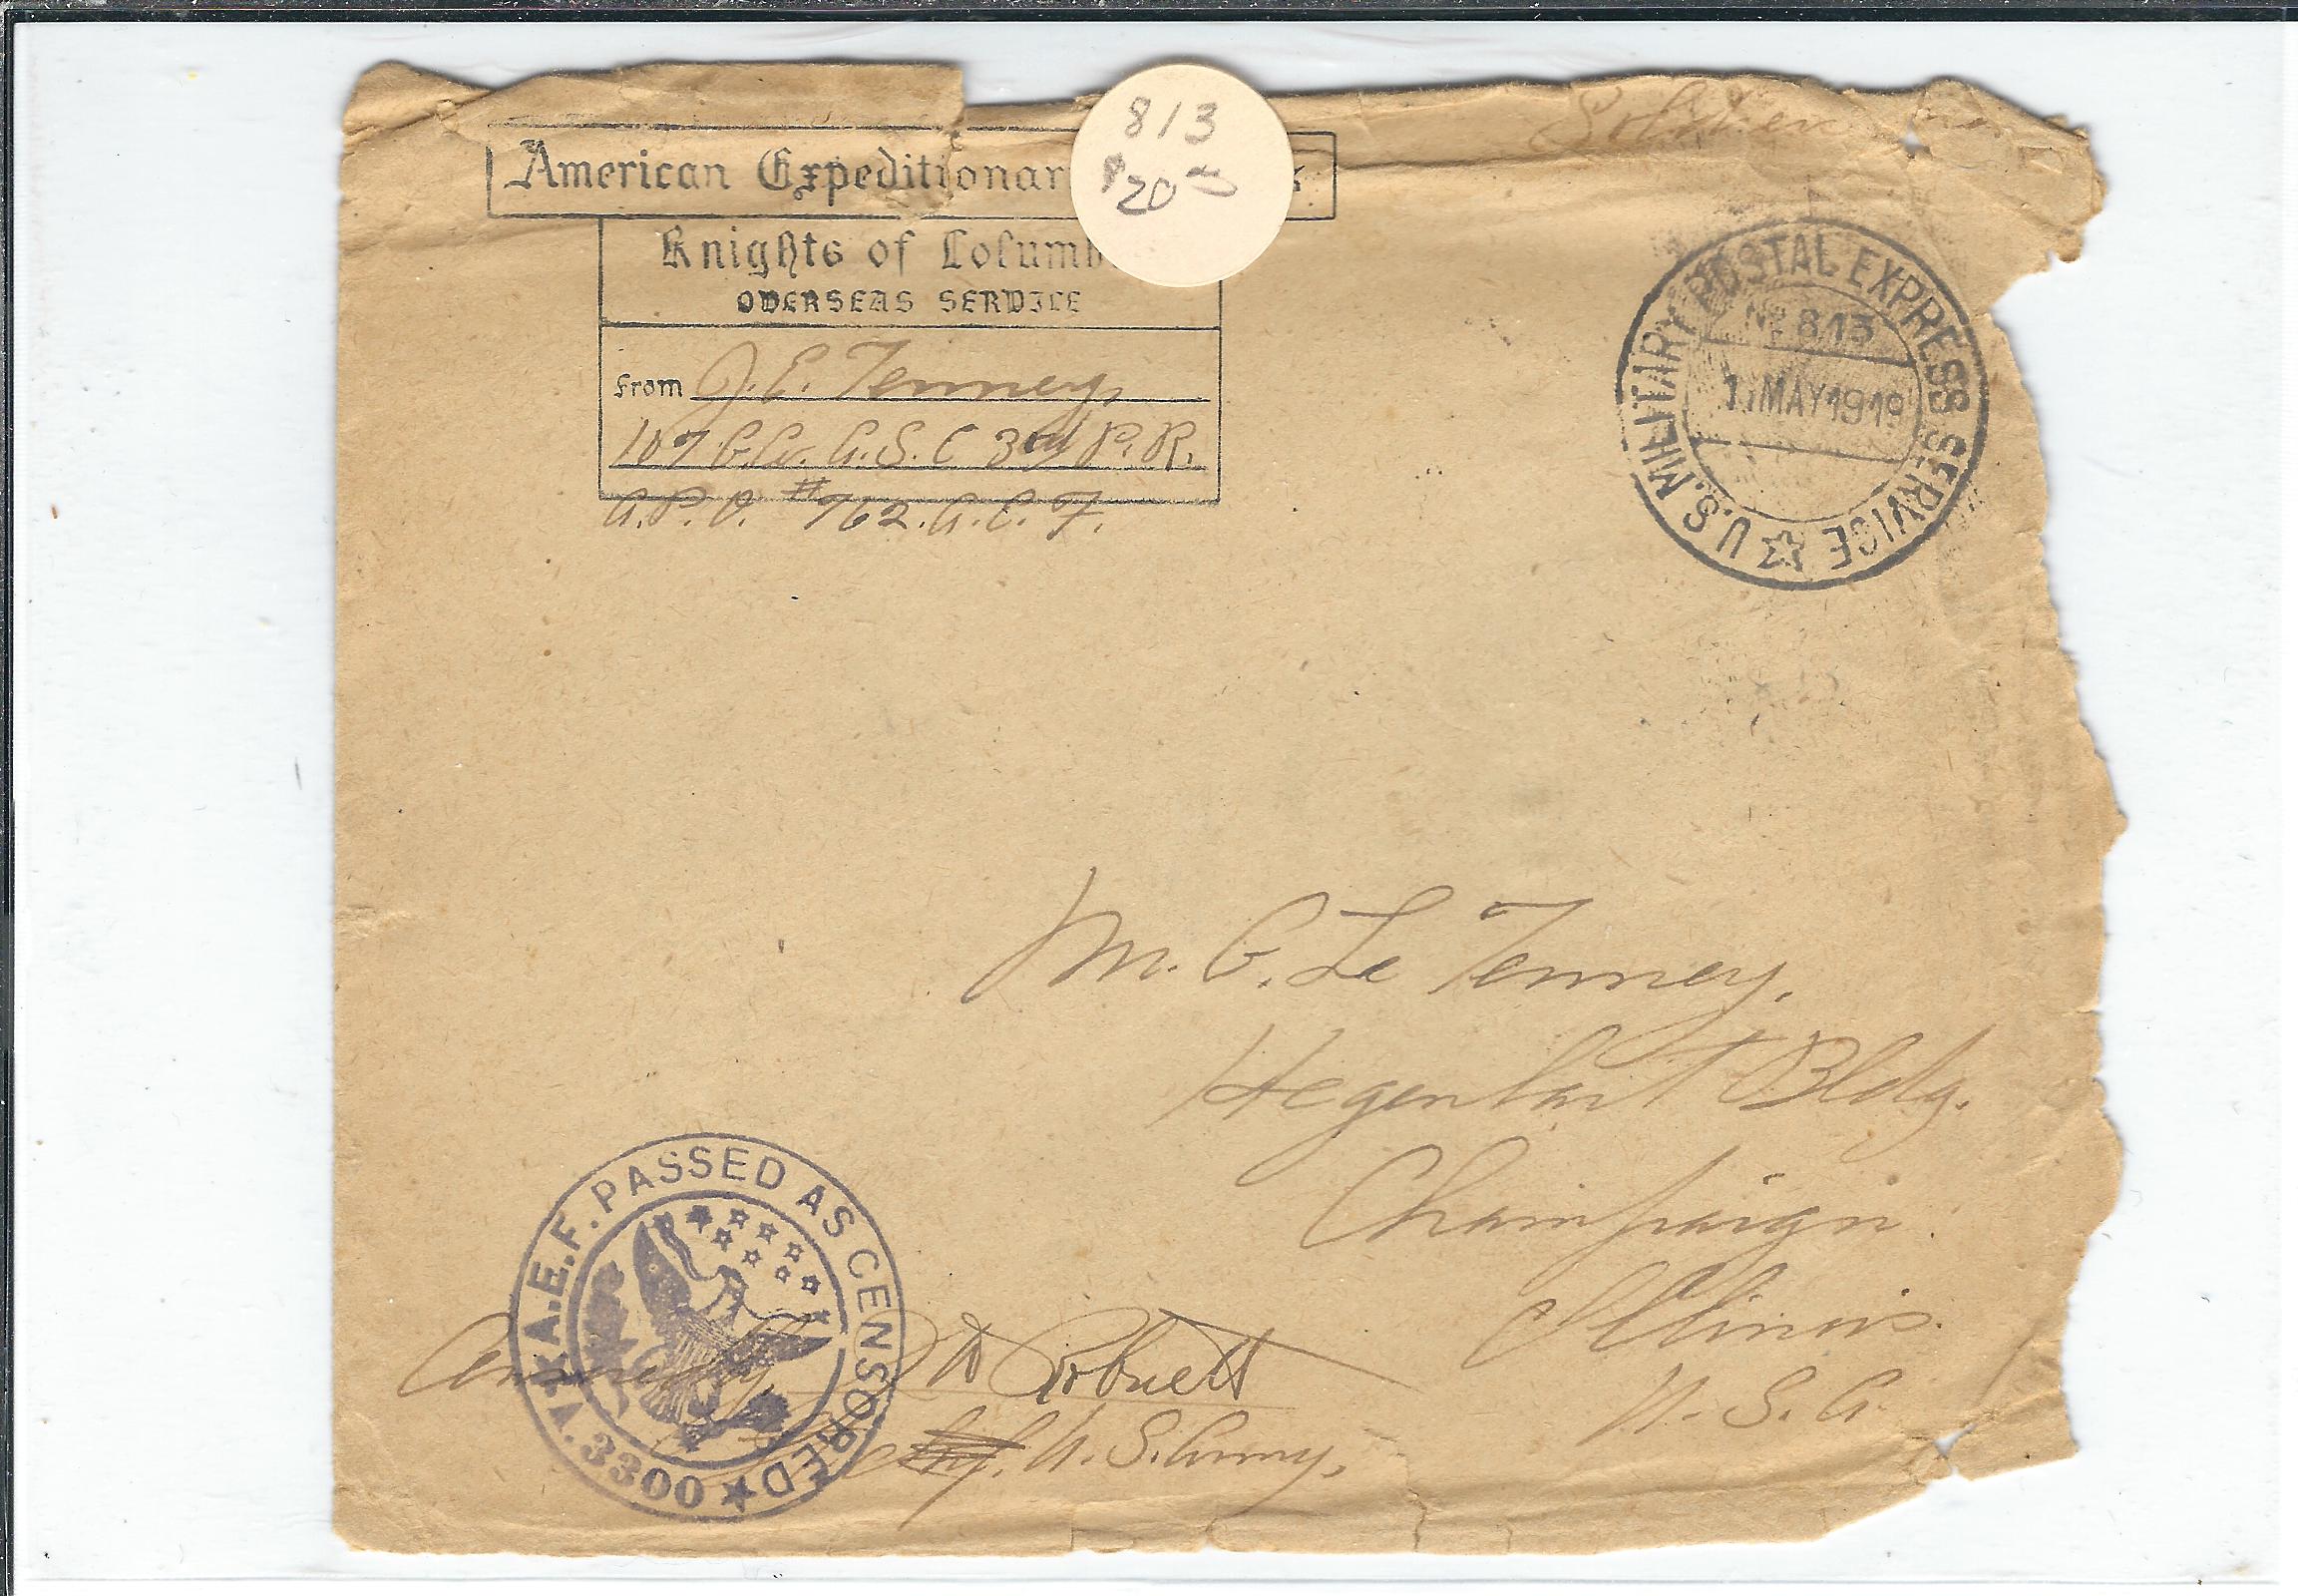 813
$20
Soldier
American Expeditionar
Knights of Columb
OVERSEAS SERVICE
From J. E. Tenney,
107 C. Co. A. S. C 3rd P. R.
A. P. O. #762. A. E. F.
U.S. MILITARY POSTAL EXPRESS SERVICE
No 813
MAY 1919
M. G. Le Tenney.
Hegenbart Bldg.
Champaign
Illinois.
U. S. A.
A.E.F. PASSED AS CENSORED
V. 3300
U. S. Army.